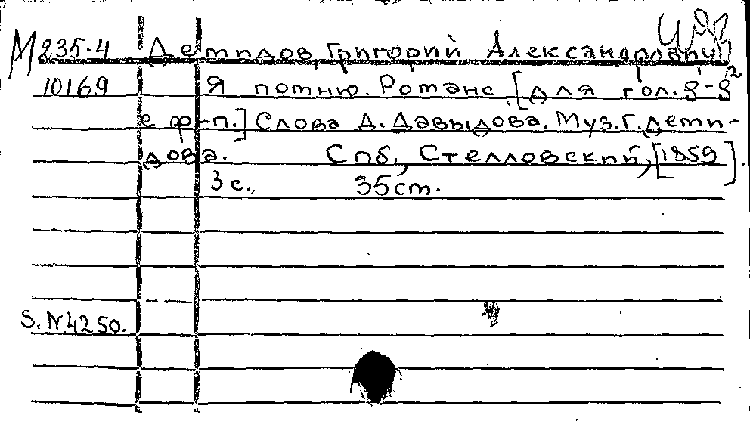 М 235-4 Демидов, Григорий Александрович
10169 Я помню. Романс. [для гол. g-g²
с ф-п.] Слова Д. Давыдова. Муз. Г. Деми-
дова. Спб., Стелловский, [1859].
3 с., 35 cm.
S. N 4250.